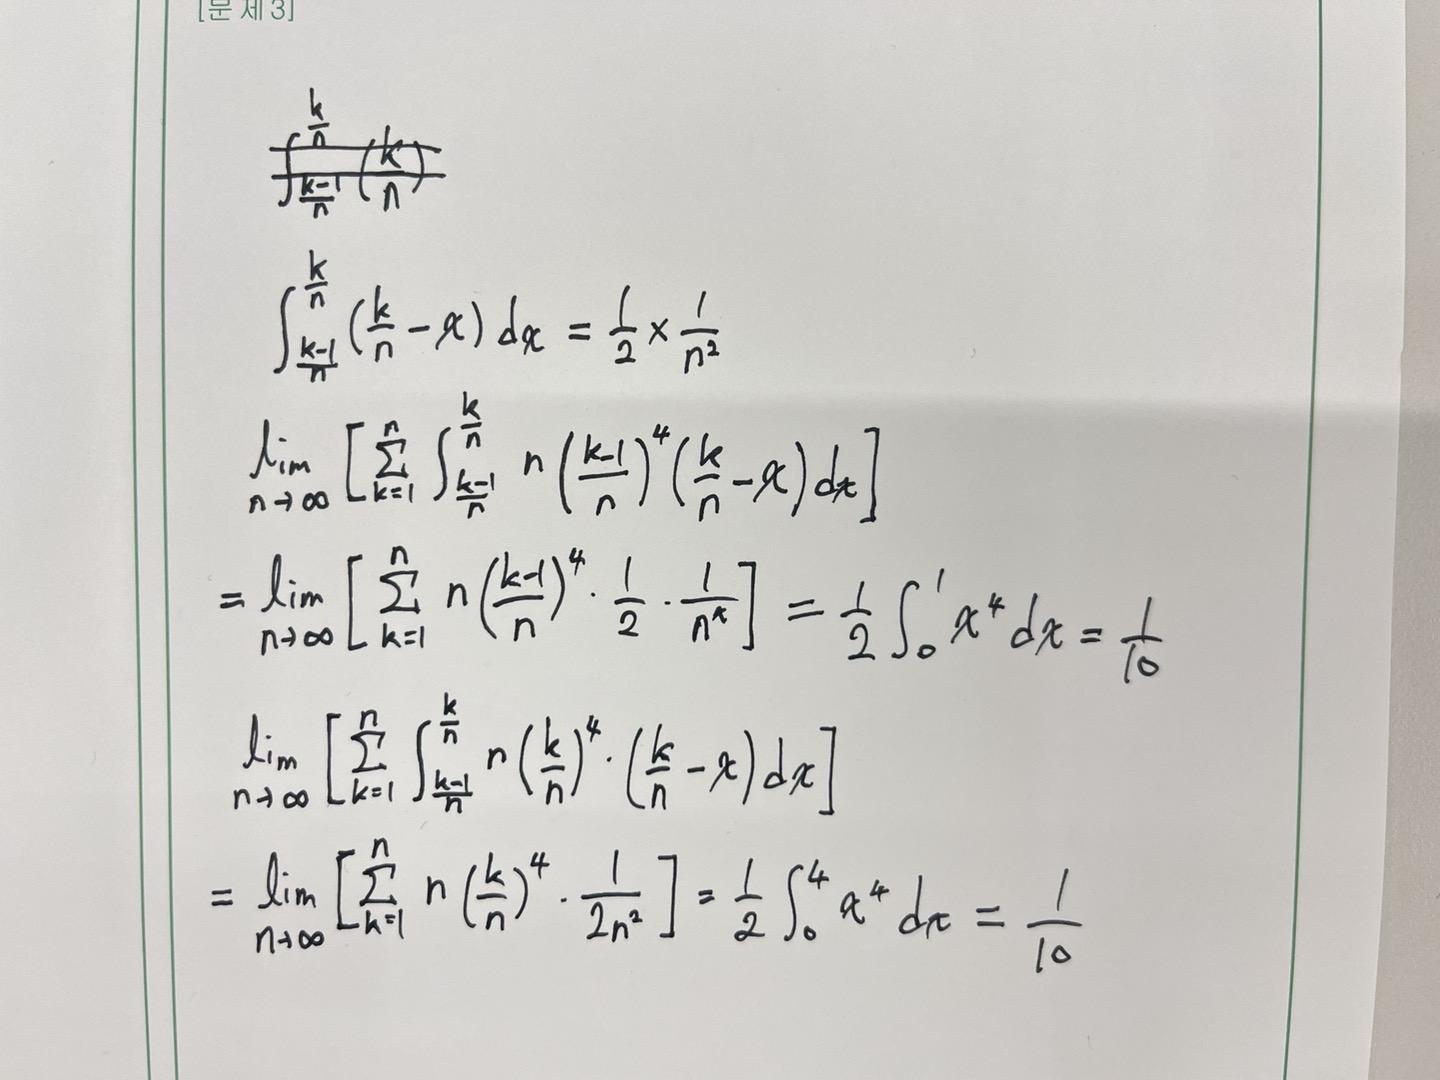 [문제3]
∫_{\frac{k-1}{n}}^{\frac{k}{n}} (\frac{k}{n})
∫_{\frac{k-1}{n}}^{\frac{k}{n}} (\frac{k}{n} - x) dx = \frac{1}{2} × \frac{1}{n^2}
lim_{n→∞} [ ∑_{k=1}^{n} ∫_{\frac{k-1}{n}}^{\frac{k}{n}} n (\frac{k-1}{n})^4 (\frac{k}{n} - x) dx ]
= lim_{n→∞} [ ∑_{k=1}^{n} n (\frac{k-1}{n})^4 · \frac{1}{2} · \frac{1}{n^2} ] = \frac{1}{2} ∫_0^1 x^4 dx = \frac{1}{10}
lim_{n→∞} [ ∑_{k=1}^{n} ∫_{\frac{k-1}{n}}^{\frac{k}{n}} n (\frac{k}{n})^4 · (\frac{k}{n} - x) dx ]
= lim_{n→∞} [ ∑_{k=1}^{n} n (\frac{k}{n})^4 · \frac{1}{2n^2} ] = \frac{1}{2} ∫_0^4 x^4 dx = \frac{1}{10}